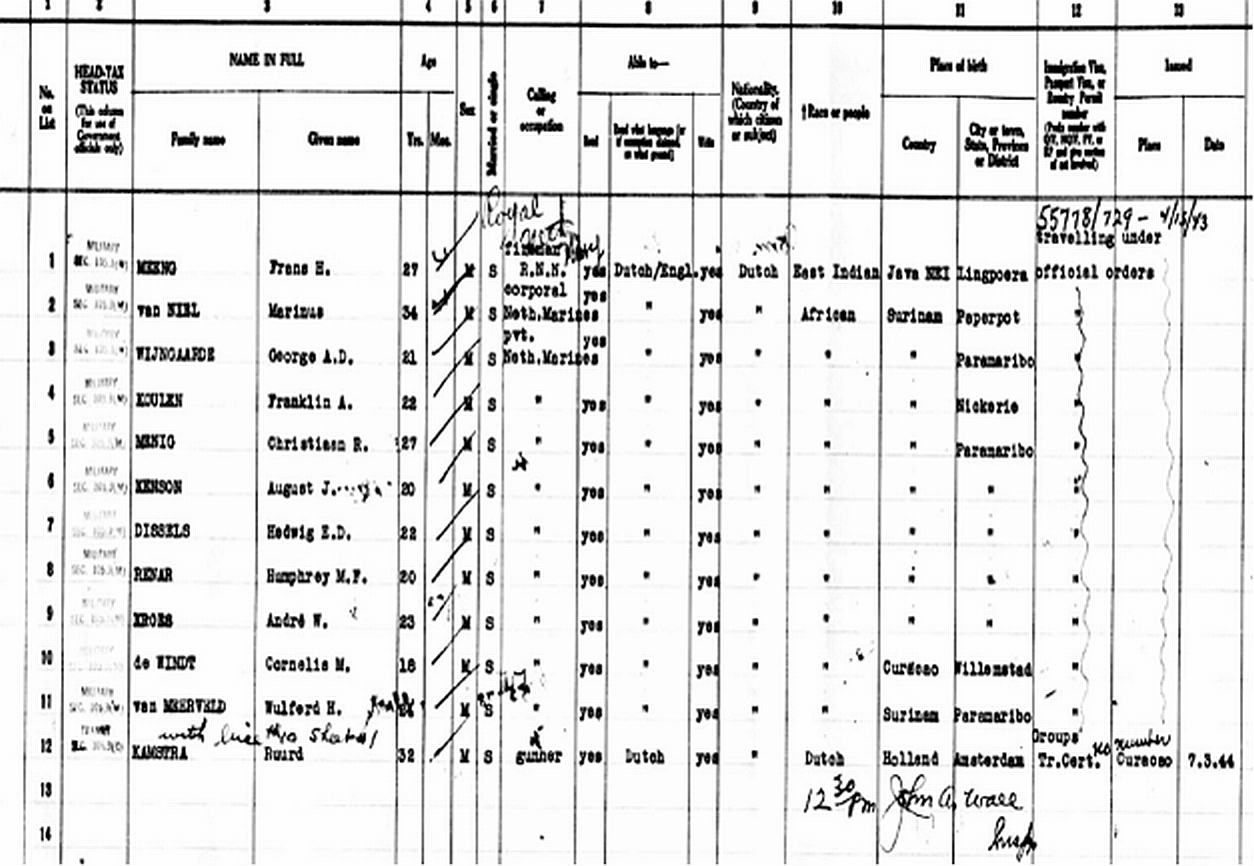 1 2 3 4 5 6 7 8 9 10 11 12 13
No. on List
HEAD-TAX STATUS (This column for use of Government officials only)
NAME IN FULL
Family name Given name
Age
Yrs. Mos.
Sex
Married or single
Calling or occupation
Able to—
Read Read what language [or if exemption claimed, on what ground] Write
Nationality. (Country of which citizen or subject)
†Race or people
Place of birth
Country City or town, State, Province or District
Immigration Visa, Passport Visa, or Reentry Permit number
Issued
Place Date
Royal
55778/729 - 4/15/43
travelling under
fireman
1 MEENG Frans H. 27 M S R.N.N. yes Dutch/Engl. yes Dutch East Indian Java NEI Lingpoera official orders
corporal yes
2 van NIEL Marinus 34 M S Neth.Marines " yes " African Surinam Peperpot "
pvt. yes
3 WIJNGAARDE George A.D. 21 M S Neth.Marines " yes " " " Paramaribo "
4 KOULEN Franklin A. 22 M S " yes " yes " " " Nickerie "
5 MENIG Christiaan R. 27 M S " yes " yes " " " Paramaribo "
6 KENSON August J. 20 M S " yes " yes " " " " "
7 DISSELS Hedwig E.D. 22 M S " yes " yes " " " " "
8 RENAR Humphrey M.F. 20 M S " yes " yes " " " " "
9 KROES André W. 23 M S " yes " yes " " " " "
10 de WINDT Cornelis M. 18 M S " yes " yes " " Curacao Willemstad "
11 van MEERVELD Wulferd H. M S " yes " yes " " Surinam Paramaribo "
Groups no number
12 KAMSTRA Ruurd 32 M S gunner yes Dutch yes " Dutch Holland Amsterdam Tr.Cert. Curacao 7.3.44
13 12 30 pm John A. Wall
14 Insp